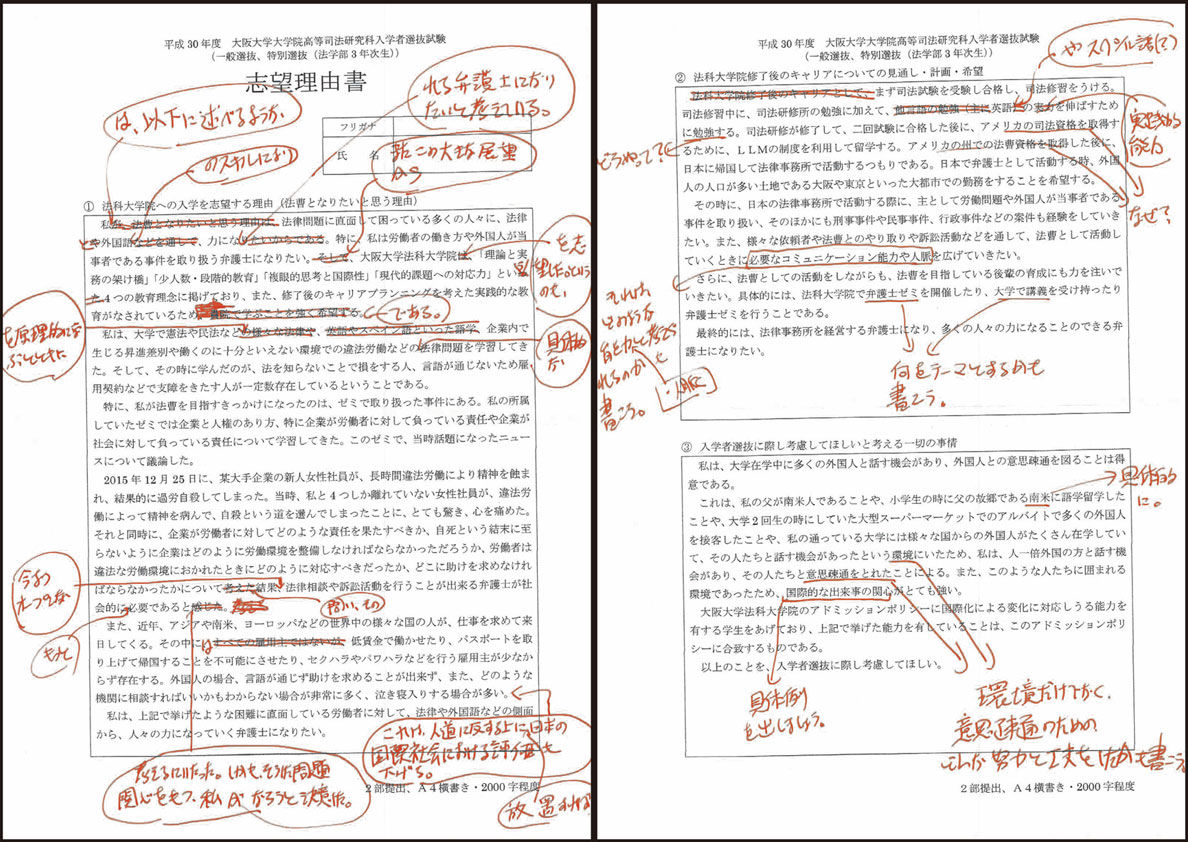 平成30年度　大阪大学大学院高等司法研究科入学者選抜試験
（一般選抜、特別選抜（法学部3年次生））
志望理由書
れる弁護士になり
たいと考えている。
は、以下に述べるような、
フリガナ
氏　名
① 法科大学院への入学を志望する理由（法曹となりたいと思う理由）
私が、法曹となりたいと思う理由は、法律問題に直面して困っている多くの人々に、法律
や外国語などを通して、力になりたいからである。特に、私は労働者の働き方や外国人が当
事者である事件を取り扱う弁護士になりたい。そして、大阪大学法科大学院は、「理論と実
務の架け橋」「少人数・段階的教育」「複眼的思考と国際性」「現代的課題への対応力」といっ
た4つの教育理念に掲げており、また、修了後のキャリアプランニングを考えた実践的な教
育がなされているため、
院で学ぶことを強く希望する。
である。
私は、大学で憲法や民法など様々な法律や、英語やスペイン語といった語学、企業内で
生じる昇進差別や働くのに十分といえない環境での違法労働などの法律問題を学習してき
た。そして、その時に学んだのが、法を知らないことで損をする人、言語が通じないため雇
用契約などで支障をきたす人が一定数存在しているということである。
特に、私が法曹を目指すきっかけになったのは、ゼミで取り扱った事件にある。私の所属
していたゼミでは企業と人権のあり方、特に企業が労働者に対して負っている責任や企業が
社会に対して負っている責任について学習してきた。このゼミで、当時話題になったニュー
スについて議論した。
2015年12月25日に、某大手企業の新人女性社員が、長時間違法労働により精神を蝕ま
れ、結果的に過労自殺してしまった。当時、私と4つしか離れていない女性社員が、違法労
働によって精神を病んで、自殺という道を選んでしまったことに、とても驚き、心を痛めた。
それと同時に、企業が労働者に対してどのような責任を果たすべきか、自死という結末に至
らないように企業はどのように労働環境を整備しなければならなかっただろうか、労働者は
違法な労働環境におかれたときにどのように対応すべきだったか、どこに助けを求めなけれ
ばならなかったかについて考えた結果、法律相談や訴訟活動を行うことが出来る弁護士が社
会的に必要であると感じた。
また、近年、アジアや南米、ヨーロッパなどの世界中の様々な国の人が、仕事を求めて来
日してくる。その中には すべての雇用主ではないが、低賃金で働かせたり、パスポートを取
り上げて帰国することを不可能にさせたり、セクハラやパワハラなどを行う雇用主が少なか
らず存在する。外国人の場合、言語が通じず助けを求めることが出来ず、また、どのような
機関に相談すればいいかもわからない場合が非常に多く、泣き寝入りする場合が多い。
私は、上記で挙げたような困難に直面している労働者に対して、法律や外国語などの側面
から、人々の力になっていく弁護士になりたい。
これは、人道に反する上に日本の
国際社会における評価を
下げる。
考えるにいたった。しかも、そうした問題
関心をもつ私がなろうと決意した。
2部提出、A4横書き・2000字程度
平成30年度　大阪大学大学院高等司法研究科入学者選抜試験
（一般選抜、特別選抜（法学部3年次生））
② 法科大学院修了後のキャリアについての見通し・計画・希望
法科大学院修了後のキャリアとして、まず司法試験を受験し合格し、司法修習をうける。
司法修習中に、司法研修所の勉強に加えて、他言語の勉強（主に英語）の実力を伸ばすため
に勉強する。司法研修が修了して、二回試験に合格した後に、アメリカの司法資格を取得す
るために、LLMの制度を利用して留学する。アメリカの州での法曹資格を取得した後に、
日本に帰国して法律事務所で活動するつもりである。日本で弁護士として活動する時、外国
人の人口が多い土地である大阪や東京といった大都市での勤務をすることを希望する。
その時に、日本の法律事務所で活動する際に、主として労働問題や外国人が当事者である
事件を取り扱い、そのほかにも刑事事件や民事事件、行政事件などの案件も経験をしていき
たい。また、様々な依頼者や法曹とのやり取りや訴訟活動などを通して、法曹として活動し
ていくときに必要なコミュニケーション能力や人脈を広げていきたい。
さらに、法曹としての活動をしながらも、法曹を目指している後輩の育成にも力を注いで
いきたい。具体的には、法科大学院で弁護士ゼミを開催したり、大学で講義を受け持ったり
弁護士ゼミを行うことである。
最終的には、法律事務所を経営する弁護士になり、多くの人々の力になることのできる弁
護士になりたい。
どうやって？
なぜ？
何をテーマとするかも
書こう。
③ 入学者選抜に際し考慮してほしいと考える一切の事情
私は、大学在学中に多くの外国人と話す機会があり、外国人との意思疎通を図ることは得
意である。
これは、私の父が南米人であることや、小学生の時に父の故郷である南米に語学留学した
ことや、大学2回生の時にしていた大型スーパーマーケットでのアルバイトで多くの外国人
を接客したことや、私の通っている大学には様々な国からの外国人がたくさん在学してい
て、その人たちと話す機会があったという環境にいたため、私は、人一倍外国の方と話す機
会があり、その人たちと意思疎通をとれたことによる。また、このような人たちに囲まれる
環境であったため、国際的な出来事の関心がとても強い。
大阪大学法科大学院のアドミッションポリシーに国際化による変化に対応しうる能力を
有する学生をあげており、上記で挙げた能力を有していることは、このアドミッションポリ
シーに合致するものである。
以上のことを、入学者選抜に際し考慮してほしい。
具体的
に。
具体例
を出しましょう。
環境だけでなく、
意思疎通のための
2部提出、A4横書き・2000字程度